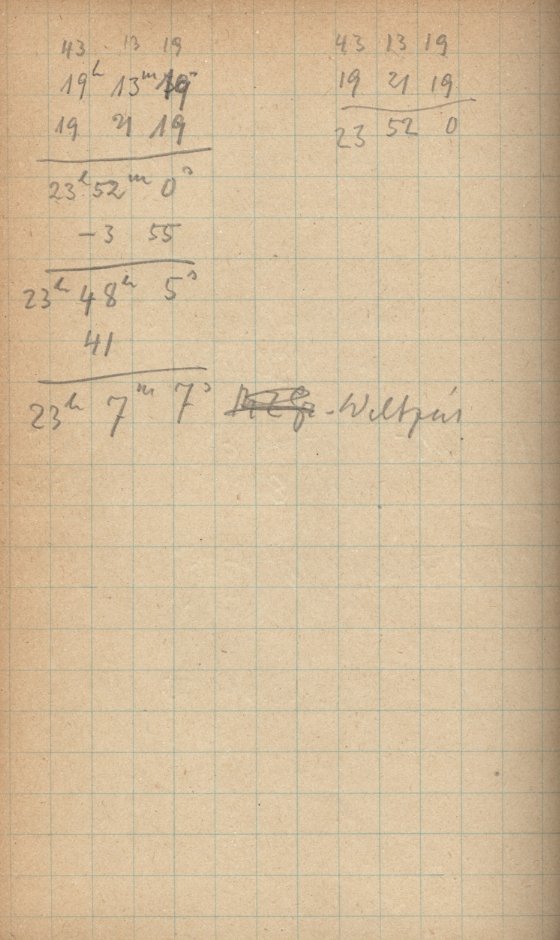 43 13 19
19h 13m 19s
19 21 19
23h 52m 0s
-3 55
23h 48h 5s
41
23h 7m 7s
43 13 19
19 21 19
23 52 0